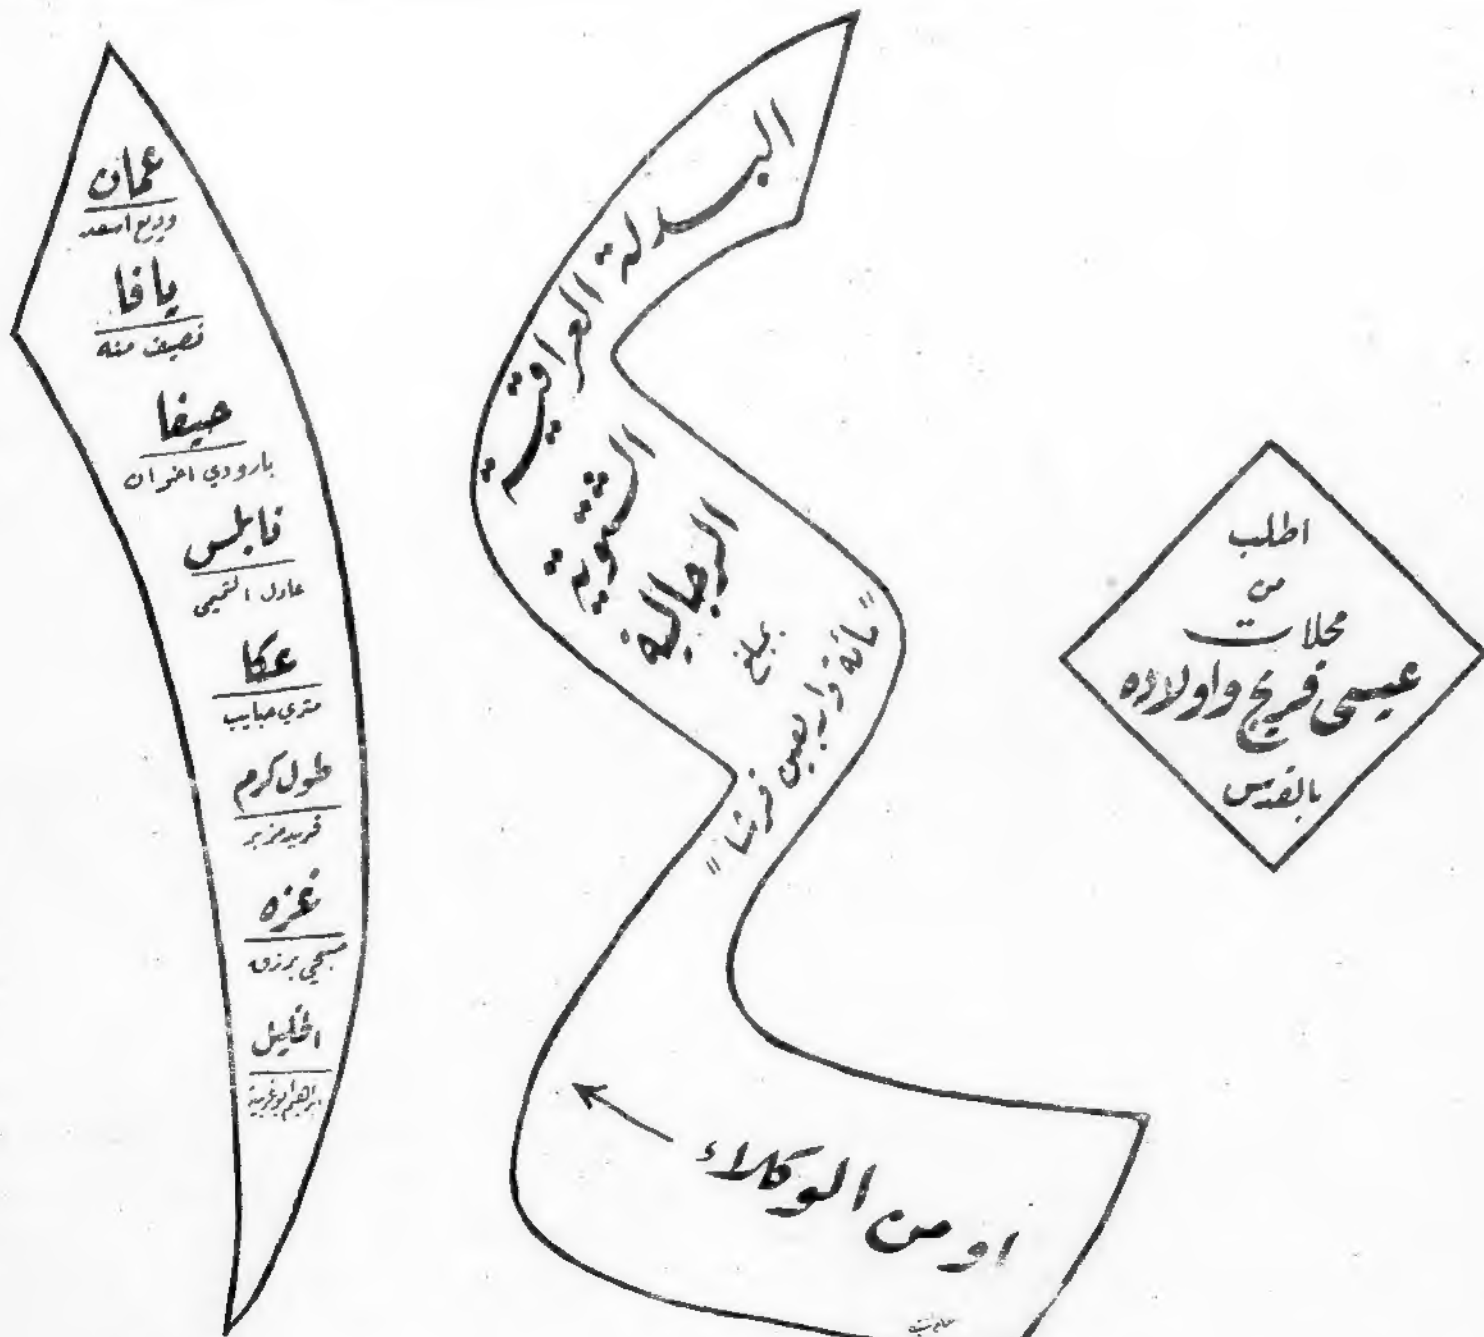 اطلب
من
محلات
عيسى فريج واولاده
بالقدس
البدلة العراقية
الشتوية
الرجالية
بمبلغ
"مائة واربعين قرشا"
او من الوكلاء
عمان
وديع اسعد
يافا
نصيف منه
حيفا
بارودي اخوان
نابلس
عادل التميمي
عكا
متري حبايب
طول كرم
فريد
غزه
صبحي برزق
الخليل